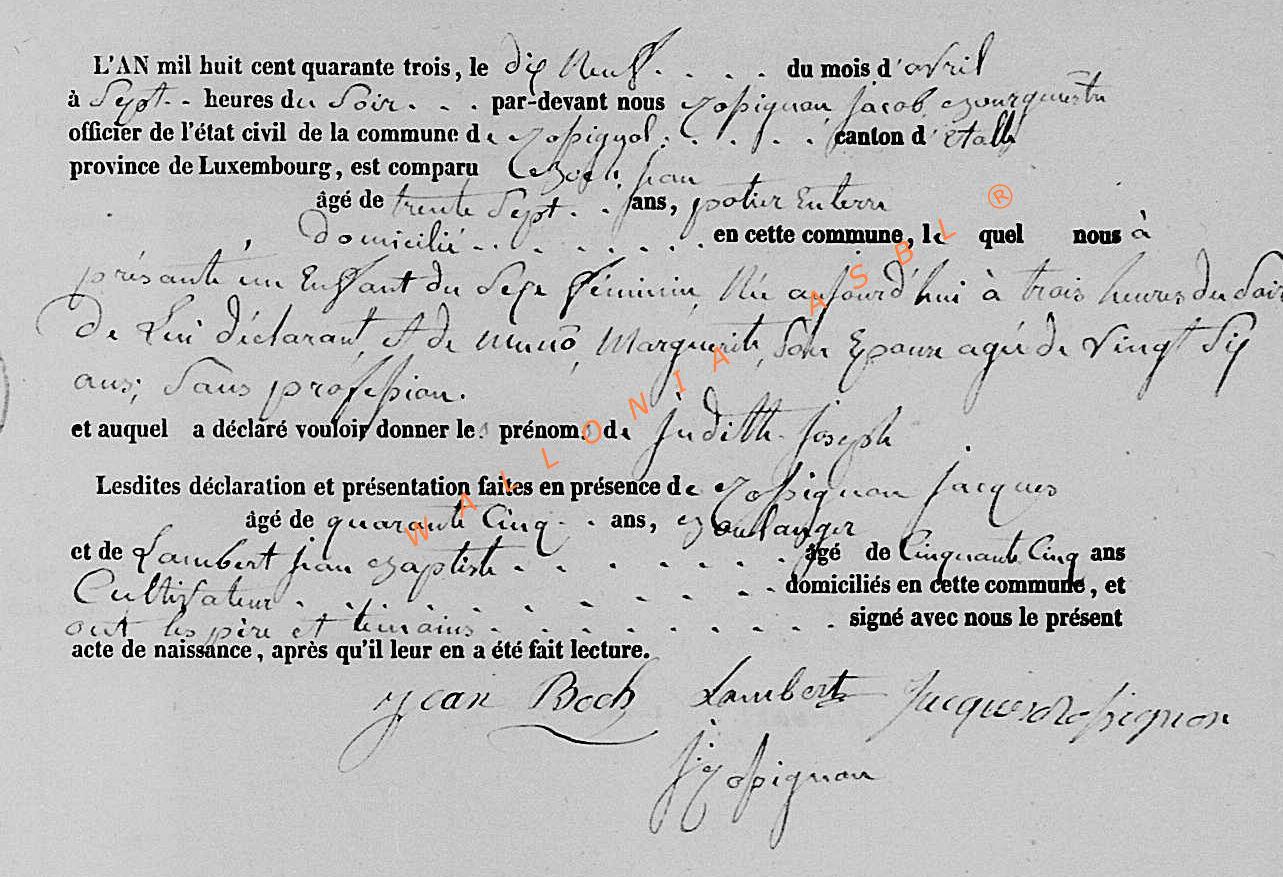 L'AN mil huit cent quarante trois, le dix Neuf . . . . du mois d'avril
à Sept . . heures du Soir . . . par-devant nous Rossignon Jacob Bourguestre
officier de l'état civil de la commune de Rossignol . . . . . canton d'étalle
province de Luxembourg, est comparu Boch jean
âgé de trente Sept . . ans, potier En terre
Domicilié . . . . . . . en cette commune, le quel nous à
présante un Enfant du Sexe féminin, Née aujourd'hui à trois heures du Soir
De Lui déclarant, et de Munô, Marguerite, Son Epouse agée de Vingt Six
ans, Sans profession.
et auquel a déclaré vouloir donner les prénoms de Judith Joseph
Lesdites déclaration et présentation faites en présence de Rossignon jacques
âgé de quarante Cinq . . ans, Boulanger
et de Lambert jean Baptiste . . . . . . . âgé de Cinquante Cinq ans
Cultivateur . . . . . . . . . domiciliés en cette commune, et
ont les père et témoins . . . . . . . . . signé avec nous le présent
acte de naissance, après qu'il leur en a été fait lecture.
Jean Boch Lambert Jacques Rossignon
J: Rossignon
WALLONIA ASBL ®